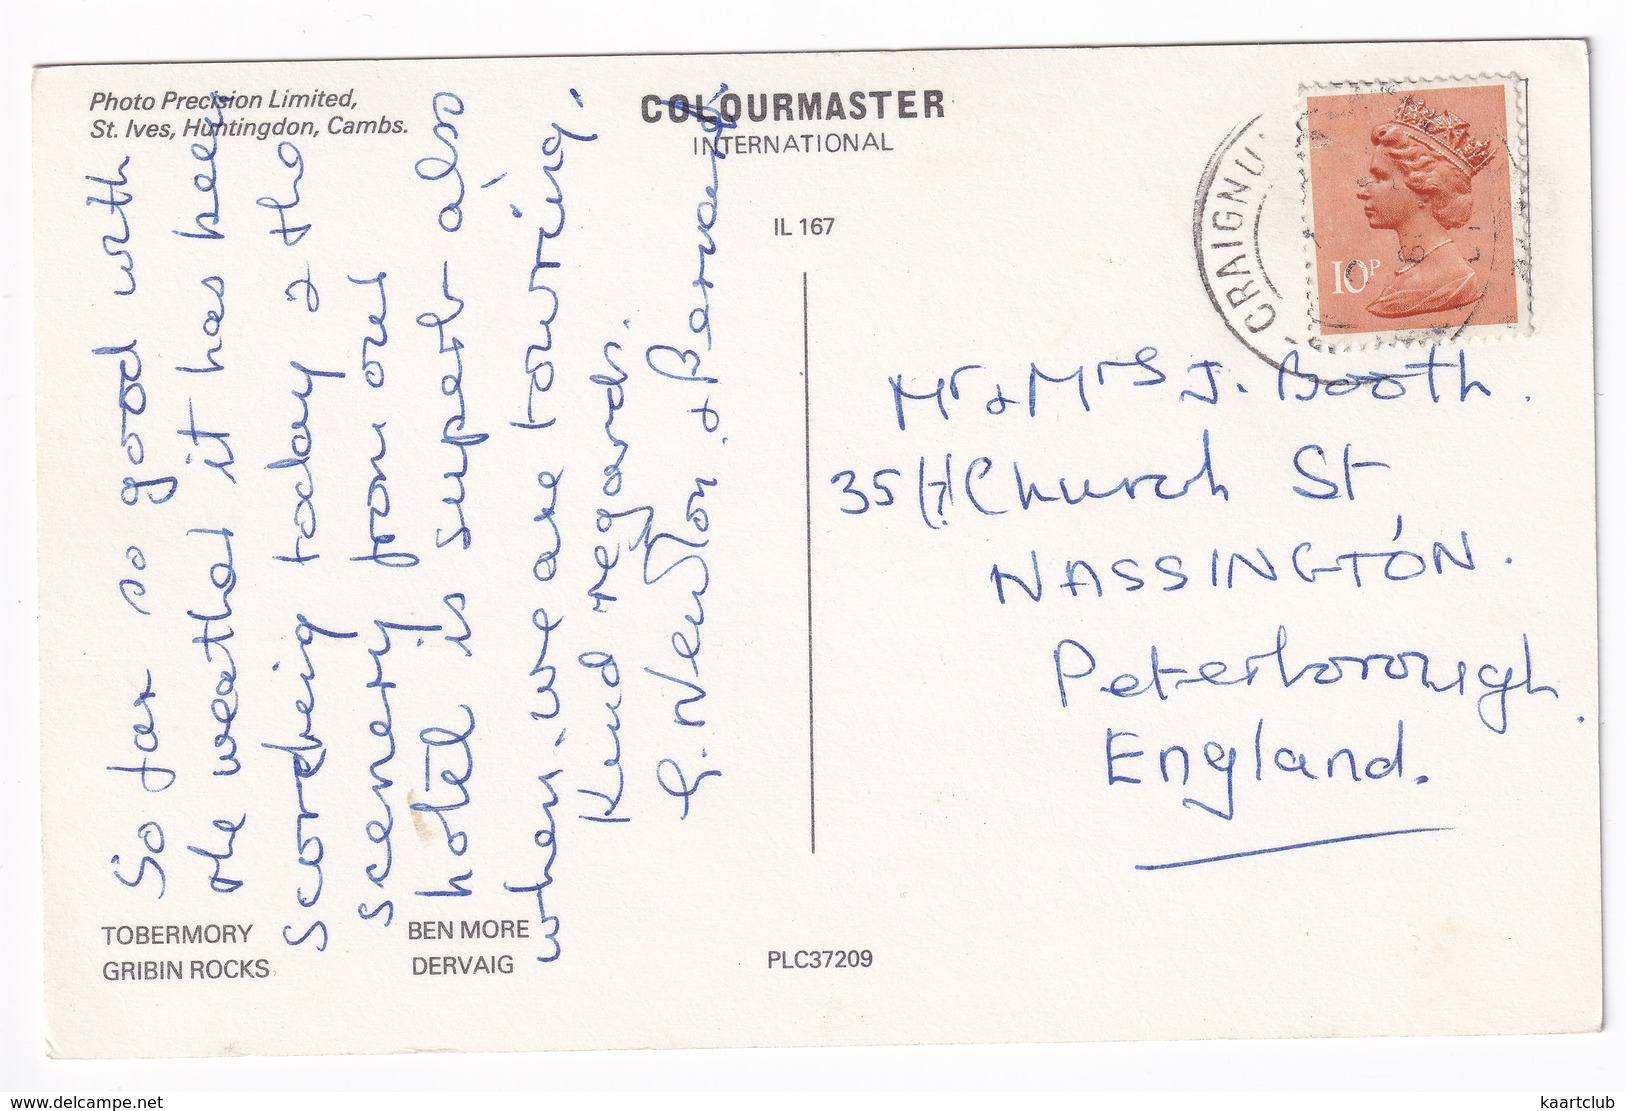 Photo Precision Limited,
St. Ives, Huntingdon, Cambs.
COLOURMASTER
INTERNATIONAL
IL 167
CRAIGNU
10P
So far so good with
the weather it has been
scorching today & the
scenery from our
hotel is superb also
when we are touring.
Kind regards.
G. Newton. & Bernard.
Mr & Mrs J. Booth.
35 Church St
NASSINGTON.
Peterborough.
England.
TOBERMORY
GRIBIN ROCKS
BEN MORE
DERVAIG
PLC37209
www.delcampe.net
kaartclub